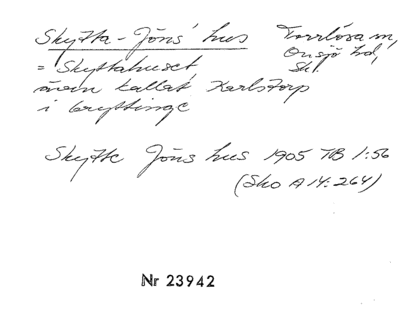 Skytta-Jöns' hus Torrlösa sn,
= Skyttahuset, Onsjö hd,
Sk.
även kallat Karlstorp
i
Skytte Jöns hus 1905 TB 1:56
(Sko A 14:264)
Nr 23942